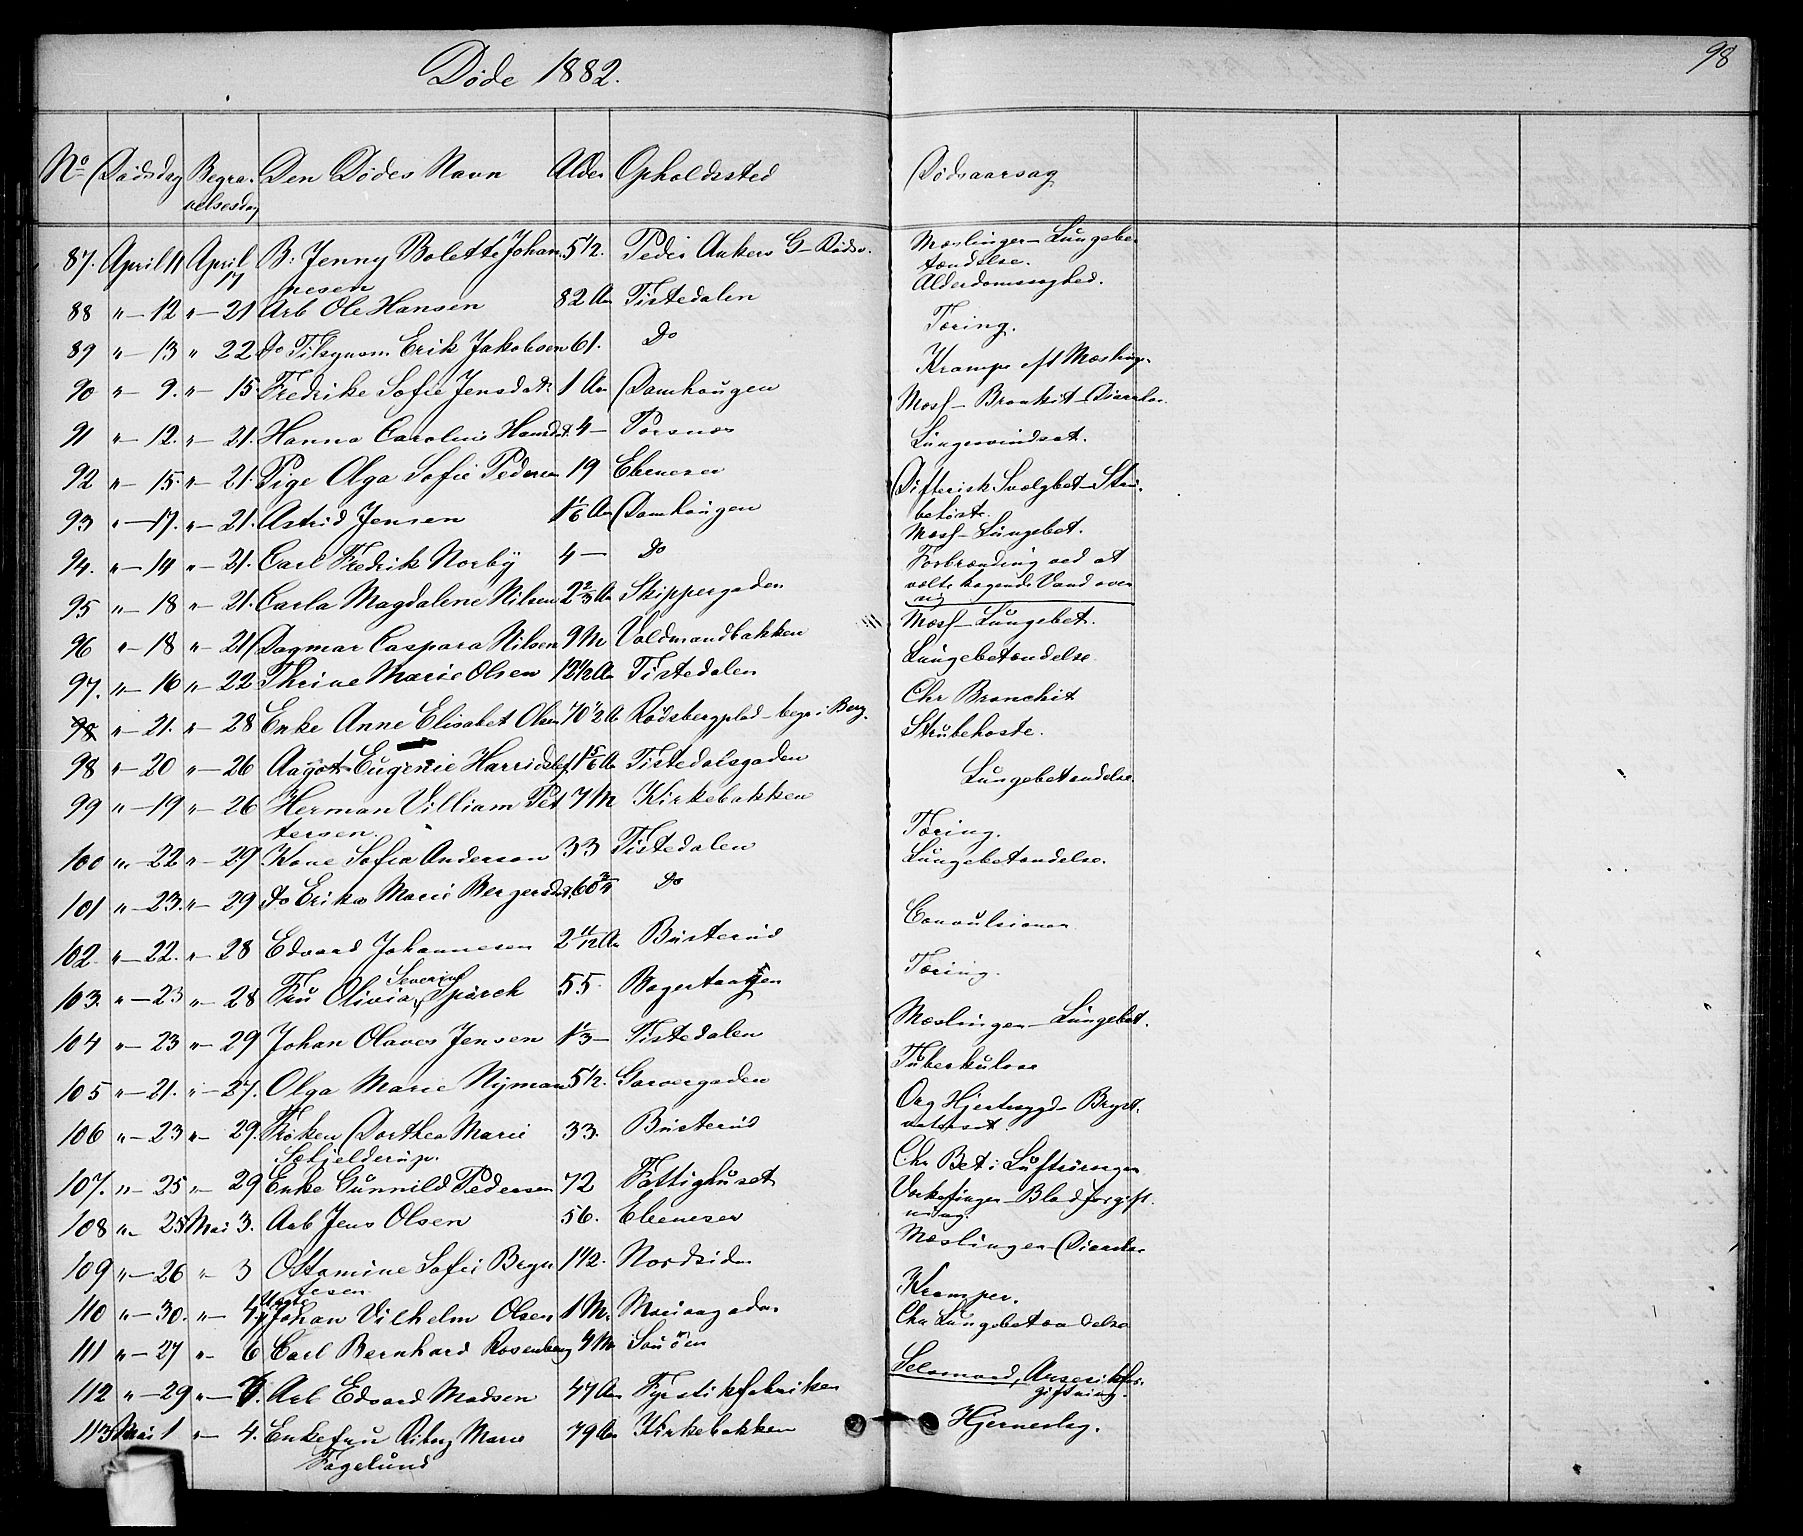 Døde 1882.
98
No Dødsdag Begra- Den Dødes Navn Alder Opholdssted Dødsaarsag
velsesdag
87. April 11 April 17 B: Jenny Bolette Johan 5 1/2. Peder Ankers G- Rødsv. Mæslinger- Lungebe-
nesen tændelse.
88 "-12 "-21 Arb Ole Hansen 82 Aar Tistedalen Alderdomssvaghed.
89 "-13 " 22. do Tilsynsm. Erik Jakobsen 61. do Tæring.
90 "-9. "-15. Fredrike Sofie Jensdatr 1 Aar Damhaugen Krampe eft Mæsling.
91 "-12. "-21. Hanna Caroline Hansdt. 4- Torsnæs Mæsl- Bronkit- Diarrhe.
92 "-15. "-21. Pige Olga Sofie Pedersen 19 Ebeneser Lungesvindsot.
93 "-17. "-21. Astrid Jensen 1 1/6 Aar Damhaugen Difterisk Svælgbet- Stru-
behoste.
94. "-14 "-21. Carl Fredrik Norby 4- do Mæsl- Lungebet.
95 "-18 "-21. Carla Magdalene Nilsen 2 2/3 Aar Skippergaden Forbrænding ved at
vælte kogende Vand over
sig
96 "-18 "-21 Dagmar Caspara Nilsen 9 M Valdmandbakken Mæsl- Lungebet.
97. "-16 "-22 Thrine Marie Olsen 12 1/2 Aar Tistedalen Lungebetændelse.
98 "-21. "-28 Enke Anne Elisabet Olsen 70 1/2 A Rødsbergplad- begr i Berg. Chr Bronchit
98 "-20 "-26 Aagot Eugenie 1 5/6 Aar Tistedalsgaden Strubehoste.
99 "-19 "-26 Herman Villiam Pet 7 M Kirkebakken Lungebetændelse.
tersen.
100 "-22 "-29 Kone Sofie Anderson 33 Tistedalen Tæring.
101 "-23. "-29 do Erika Marie Bergersdt. 60 3/4 do Lungebetændelse.
102. "-22. "-28 Edvard Johannesen 2 11/12 Aar Busterud Convulsioner
103. "-23 "-28 Fru Olivia Severine Spärck 55. Bagertaagen Tæring.
104 "-23 "-29 Johan Olaves Jensen 1 1/3- Tistedalen Mæslinger- Lungebet.
105 "-21. "-27. Olga Marie Nyman 5 1/2. Garvergaden Tuberkulose
106 "-23 "-29. Frøken Dorthea Marie 33. Busterud Org Hjertesygd- Bryst.
Schjelderup. vatersot.
107. "-25 "-29 Enke Gunnild Pedersen 72 Fattighuset Chr Bet i Luftrørsgren
108 "-25 Mai 3. Arb Jens Olsen 56. Ebeneser Verkefinger- Blodforgift-
ning.
109 "-26 "-3 Ottomine Sofie Beyn 1 1/2. Nordsiden Mæslinger- Diarrhe
tesen
110 "-30. "-4 Uægte Johan Vilhelm Olsen 1 M. Mariaagaden Kramper.
111 "-27 "-6 Carl Bernhard Rosenberg 4 M Sauøen Chr Lungebetændelse
112 "-29 "-7. Arb Edvard Madsen 47 Aar Fyrstikfabriken Selvmord, Arsenikfor-
giftning.
113 Mai 1 "-4. Enkefru Marie 79 Aar Kirkebakken Hjerneslag.
Fagelund